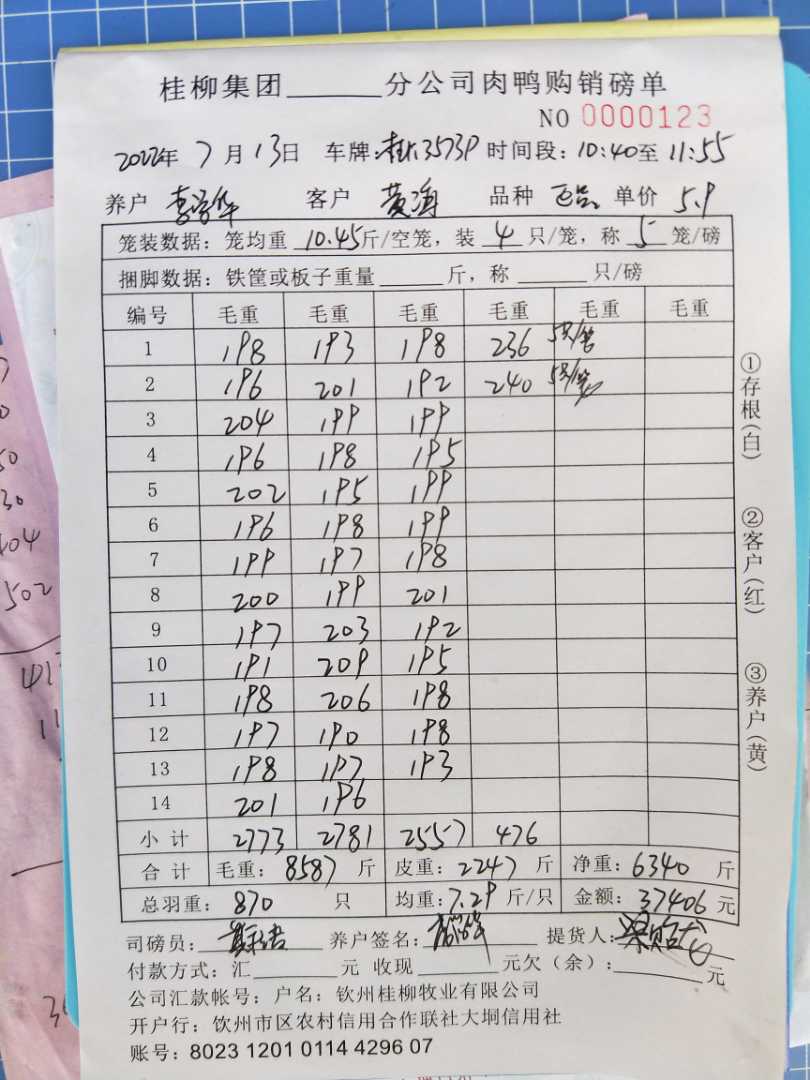 桂柳集团______分公司肉鸭购销磅单
NO 0000123
2022年 7月13日 车牌:桂K3573P 时间段:10:40至11:55
养户 李学华 客户 黄海 品种 单价 5.9
笼装数据:笼均重 10.45斤/空笼,装 4 只/笼,称 5 笼/磅
捆脚数据:铁筐或板子重量______斤,称______只/磅
编号 毛重 毛重 毛重 毛重 毛重 毛重
1 198 193 198 236 5只/笼
2 196 201 192 240 5只/笼
3 204 199 199
4 196 198 195
5 202 195 199
6 196 198 199
7 199 197 198
8 200 199 201
9 197 203 192
10 191 209 195
11 198 206 198
12 197 190 198
13 198 197 193
14 201 196
小计 2773 2781 2557 476
合计 毛重:8587 斤 皮重:2247 斤 净重:6340 斤
总羽重:870 只 均重:7.29 斤/只 金额:37406 元
司磅员: 养户签名: 提货人:
付款方式:汇______元 收现______元欠(余):______元
公司汇款帐号:户名:钦州桂柳牧业有限公司
开户行:钦州市区农村信用合作联社大垌信用社
账号:8023 1201 0114 4296 07
①存根(白)
②客户(红)
③养户(黄)
404
502